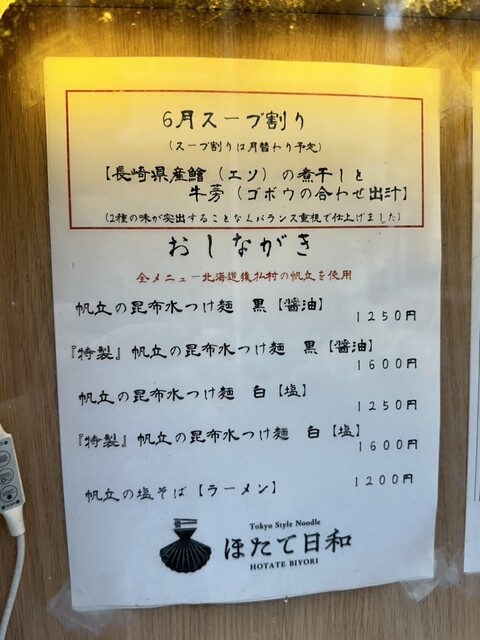 6月スープ割り
(スープ割りは月替わり予定)
【長崎県産鱠（エソ）の煮干しと
牛蒡（ゴボウの合わせ出汁】
(2種の味が突出することなくバランス重視で仕上げました)
おしながき
全メニュー北海道後払村の帆立を使用
帆立の昆布水つけ麺 黒【醬油】
1250円
『特製』帆立の昆布水つけ麺 黒【醬油】
1600円
帆立の昆布水つけ麺 白【塩】
1250円
『特製』帆立の昆布水つけ麺 白【塩】
1600円
帆立の塩そば【ラーメン】
1200円
Tokyo Style Noodle
ほたて日和
HOTATE BIYORI